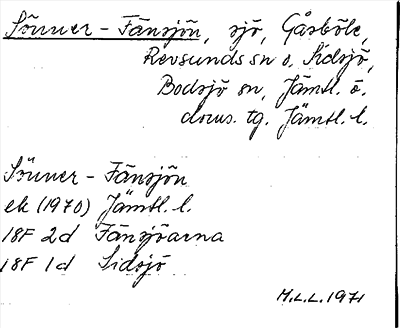 Sönner-Fänsjön, sjö, Gåsböle,
Revsunds sn o. Sidsjö,
Bodsjö sn, Jämtl. ö.
doms. tg. Jämtl. l.
Sönner-Fänsjön
ek (1970) Jämtl. l.
18F 2d Fänsjöarna
18F 1d Sidsjö
H.L.L. 1971